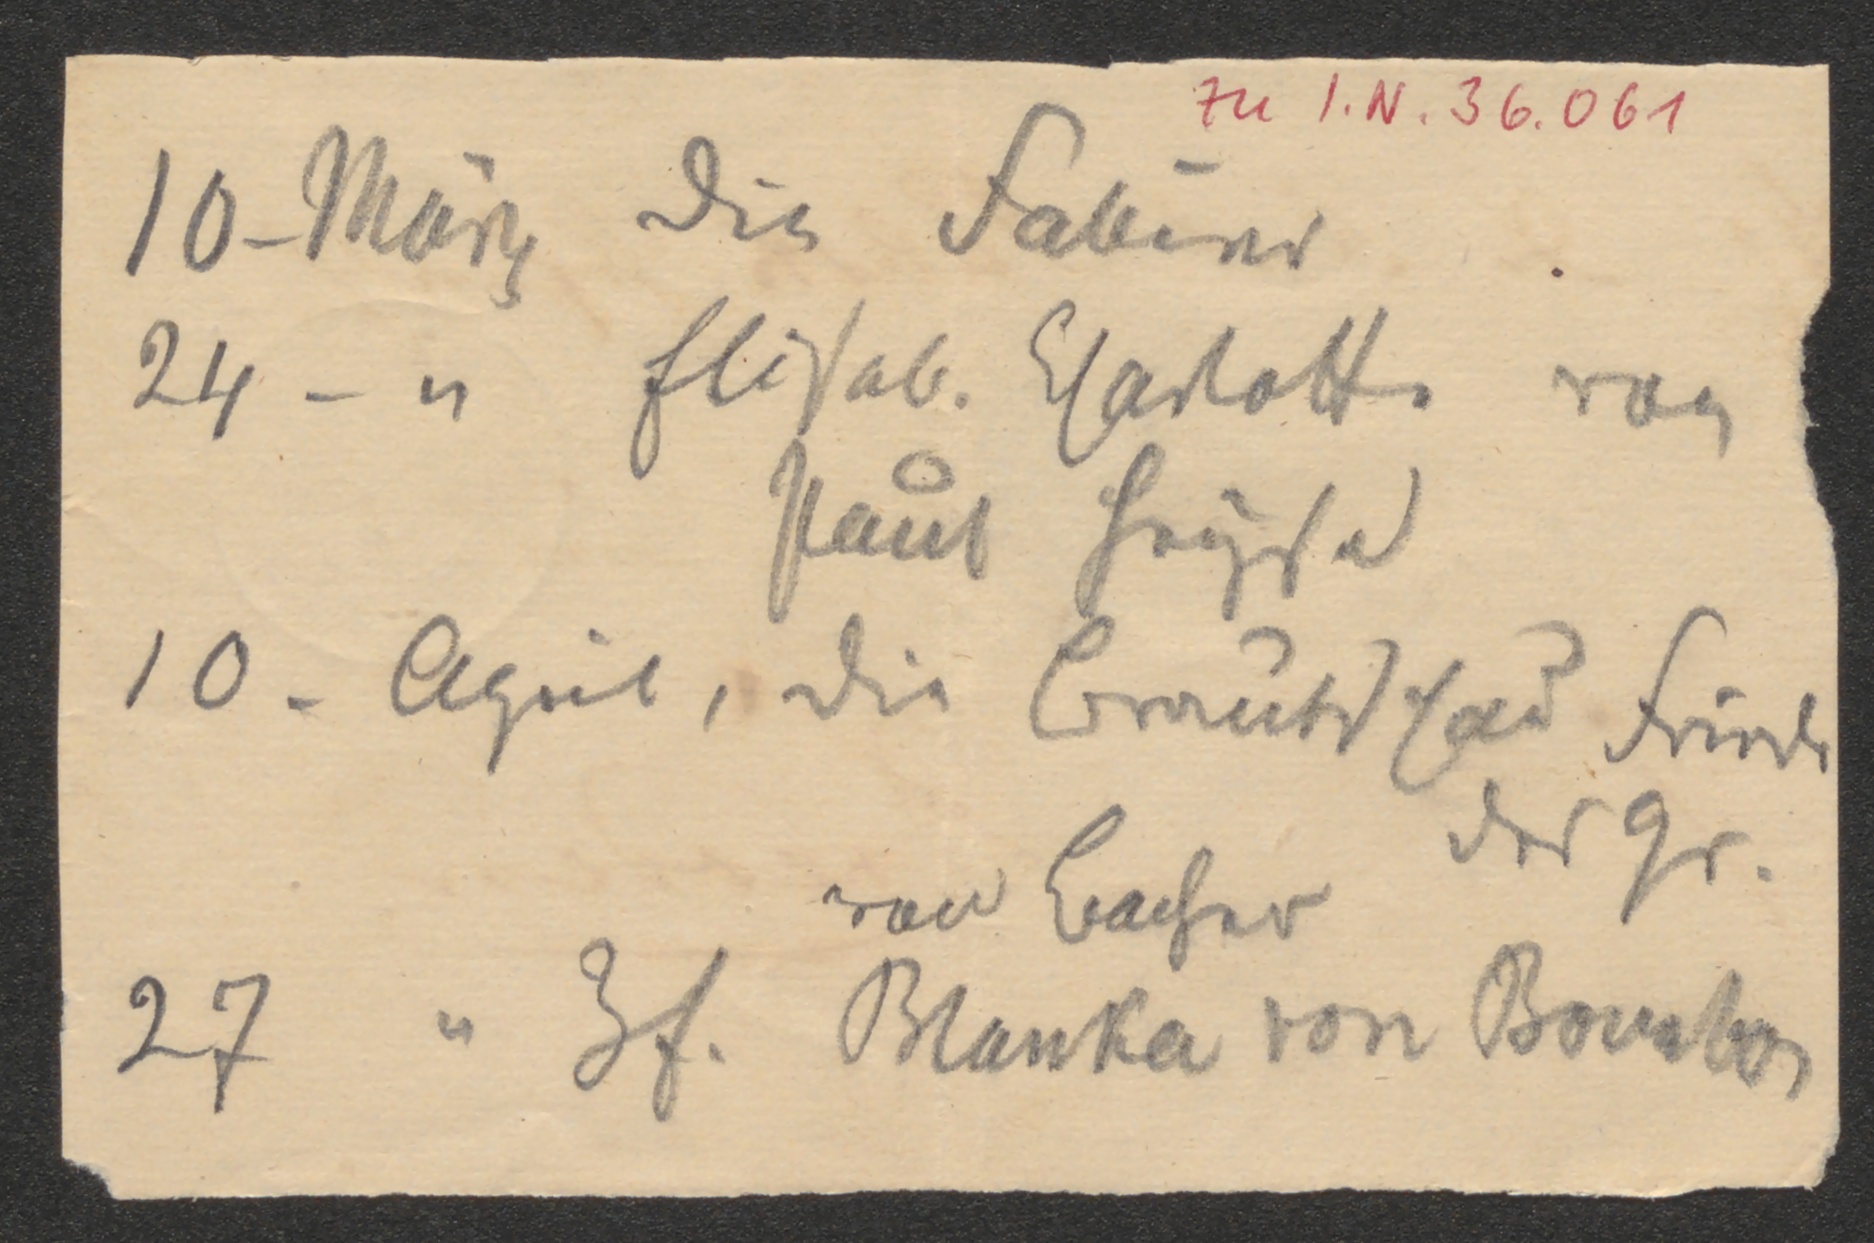 zu I.N. 36.061
10 - März die Fabier
24 - " Elisab. Charlotte von
Paul Heyse
10 - April, die Brautschau Friedr
des Gr.
von Bacher
27 " Zf. Blanka von Bourbon